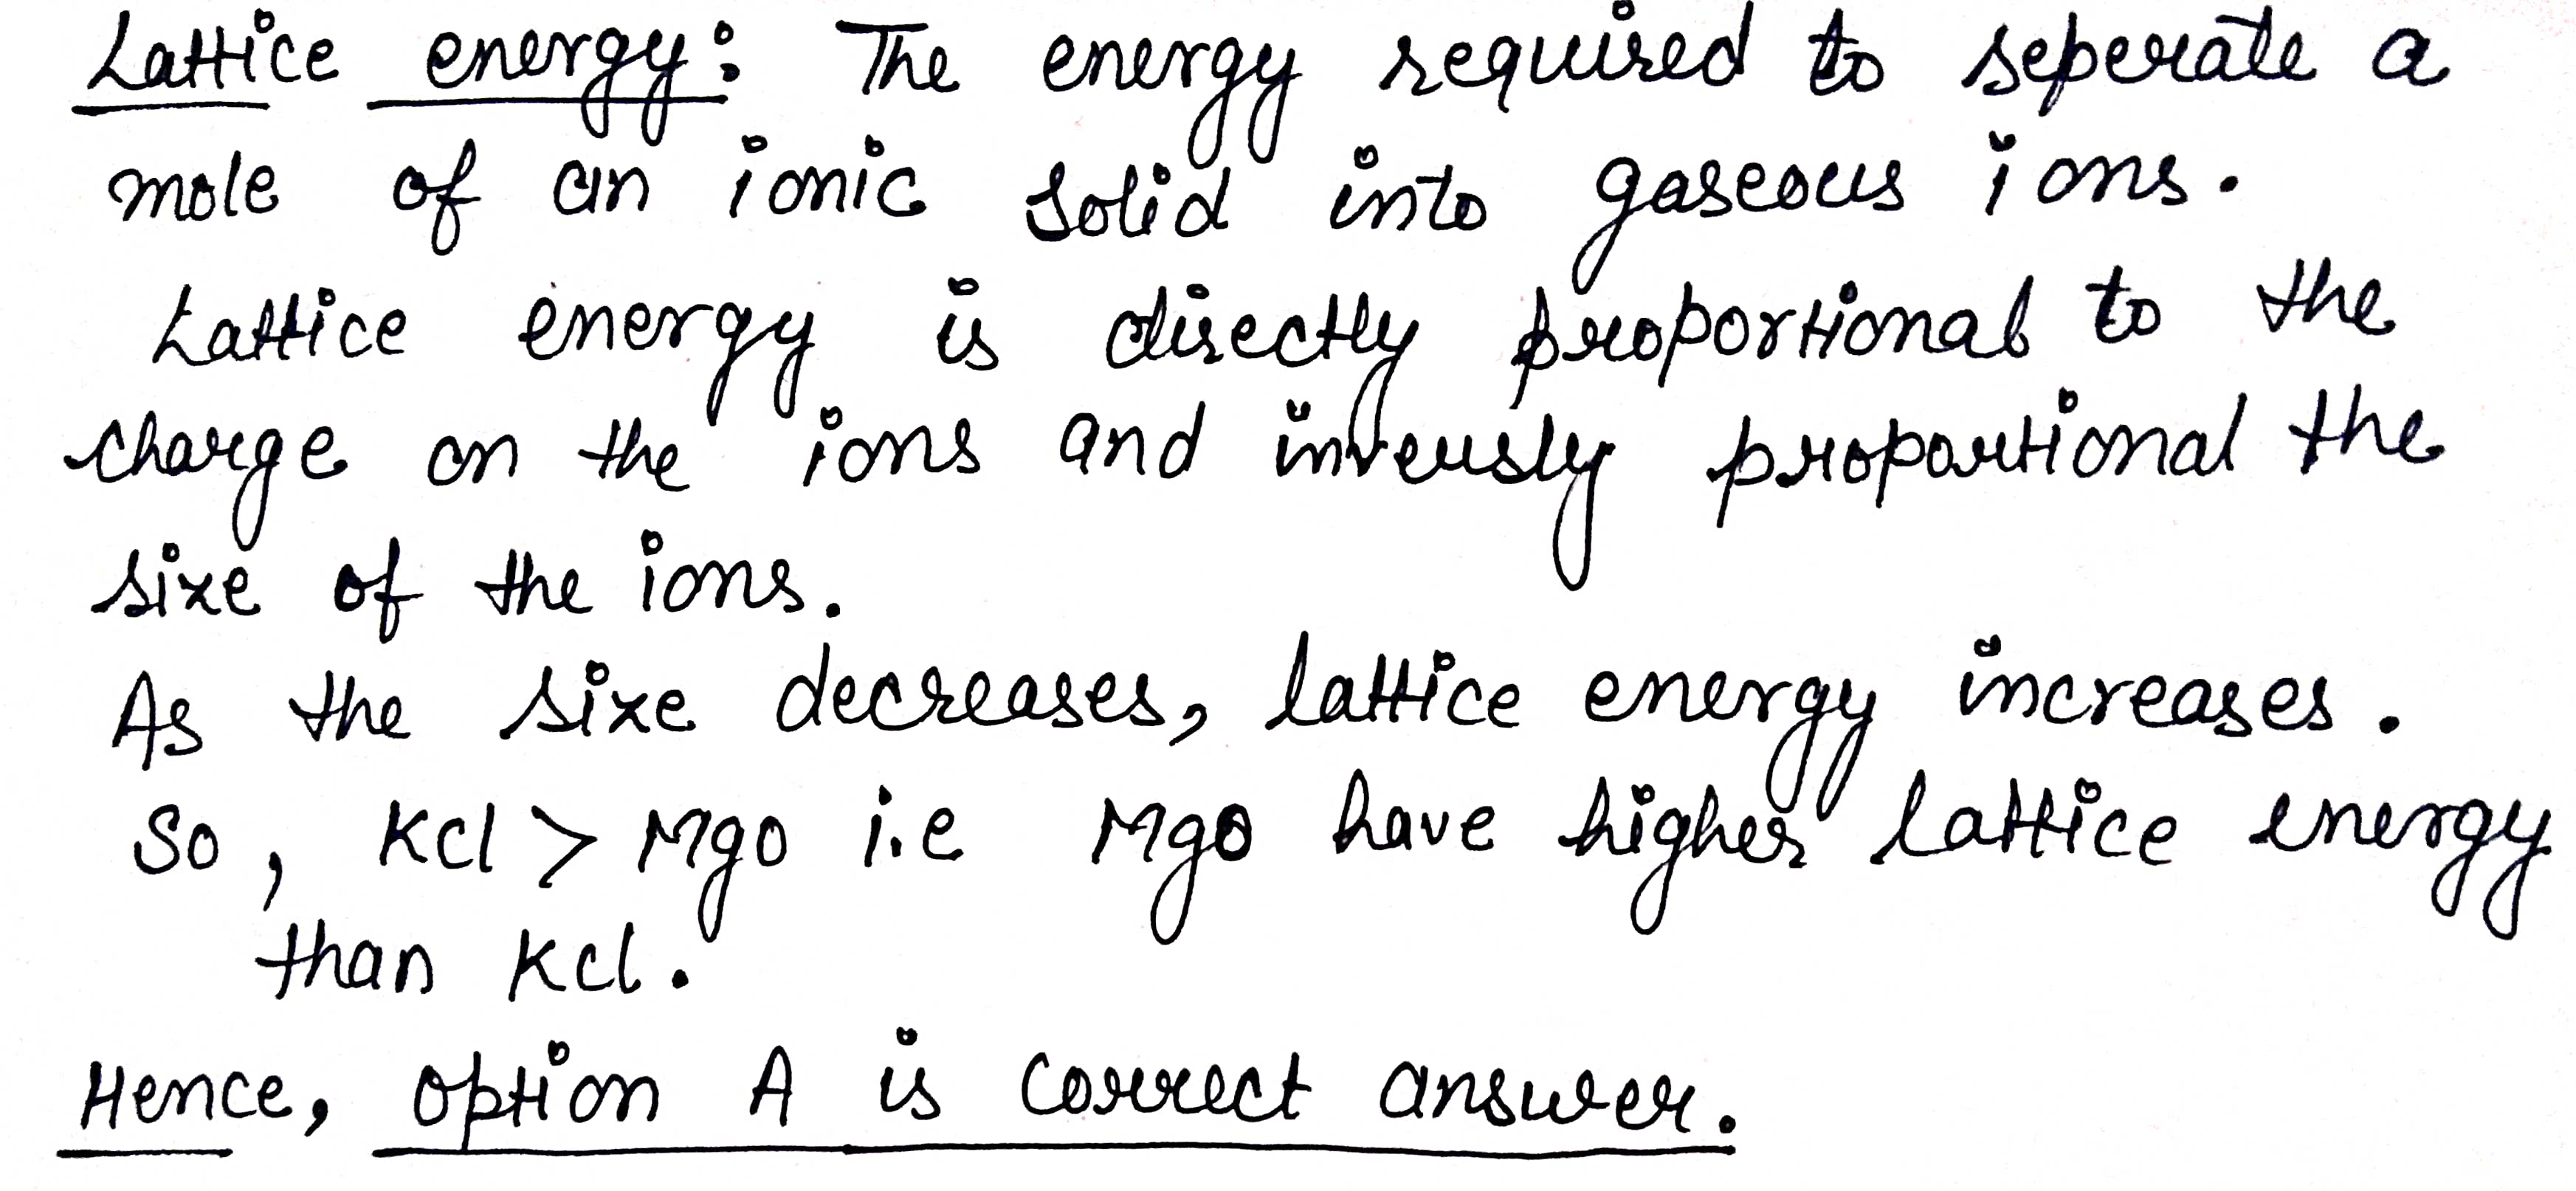 Lattice energy: The energy required to seperate a
mole of an ionic solid into gaseous ions.
Lattice energy is directly proportional to the
charge on the ions and inversly proportional the
size of the ions.
As the size decreases, lattice energy increases.
So, KCl > MgO i.e MgO have higher lattice energy
than KCl.
Hence, option A is correct answer.